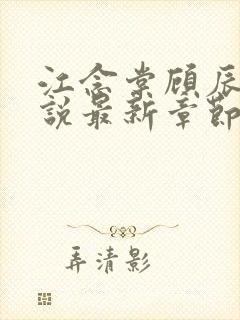 江念棠顾辰
說最新章節
弄清影